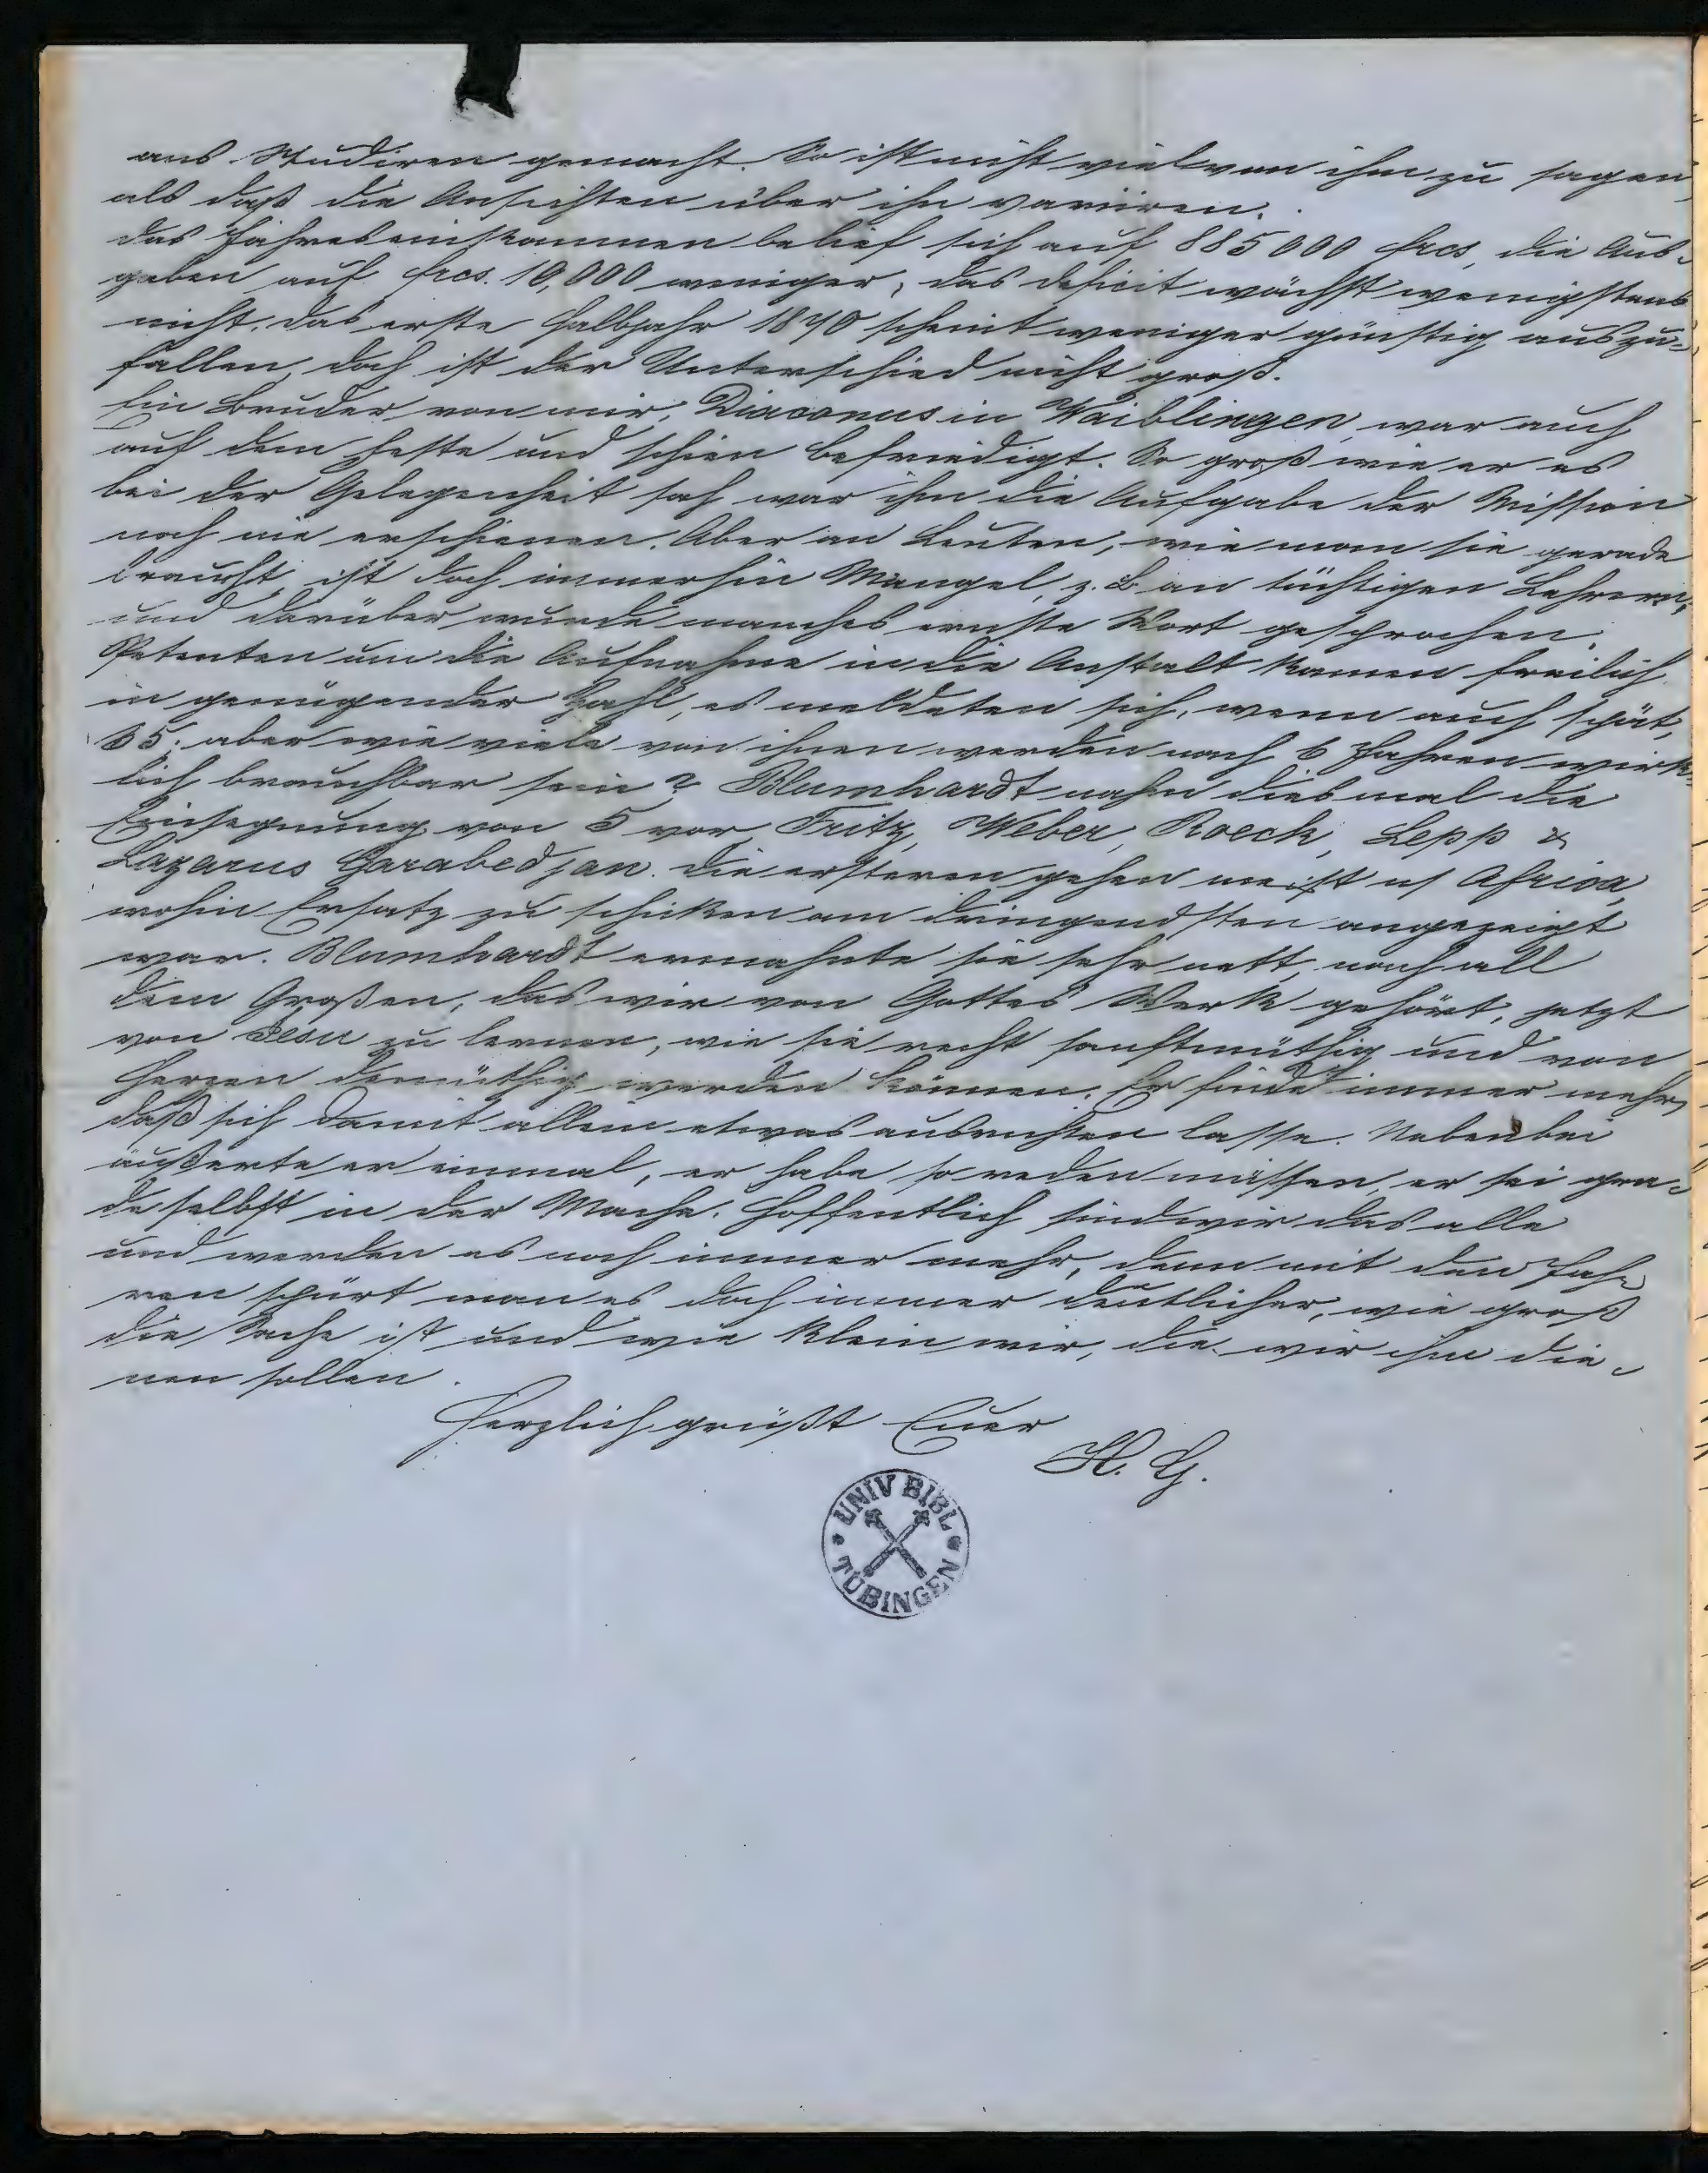 ans Studiren gemacht. So ist nicht viel von ihm zu sagen,
als daß die Ansichten über ihn variiren.
Das Jahreseinkommen belief sich auf 885000 frcs, die Aus-
gaben auf frcs. 10,000 weniger, das deficit wächst wenigstens
nicht, das erste Halbjahr 1870 scheint weniger günstig auszu-
fallen, doch ist der Unterschied nicht groß.
Ein Bruder von mir, Diaconus in Waiblingen, war auch
auf dem Feste und schien befriedigt. So groß wie er es
bei der Gelegenheit sah war ihm die Aufgabe der Mission
noch nie erschienen. Aber an Leuten, wie man sie gerade
braucht, ist doch immerhin Mangel, z. B an tüchtigen Lehrern,
und darüber wurde manches ernste Wort gesprochen.
Petenten um die Aufnahme in die Anstalt kamen freilich
in genügender Zahl, es meldeten sich, wenn auch spät,
35; aber wie viele von ihnen werden nach 6 Jahren wirk-
lich brauchbar sein? Blumhardt nahm diesmal die
Einsegnung von 5 vor, Fritz, Weber, Roeck, Lepp &
Lazarus Garabedjan. Die ersteren gehen meist n/ Africa,
wohin Ersatz zu schicken am dringendsten angezeigt
war. Blumhardt ermahnte sie sehr nett, nach all
dem Großen, das wir von Gottes Werk gehört, jetzt
von Jesu zu lernen, wie sie recht sanftmüthig und von
Herzen demüthig werden können. Er finde immer mehr,
daß sich damit allein etwas ausrichten lasse. Nebenbei
äußerte er einmal, er habe so reden müssen, er sei gra-
de selbst in der Mache. Hoffentlich sind wir das alle
und werden es noch immer mehr, denn mit den Jah-
ren spürt man es doch immer deutlicher, wie groß
die Sache ist und wie klein wir, die wir ihm die-
nen sollen.
Herzlich grüßt Euer
H. G.
UNIV BIBL
TÜBINGEN